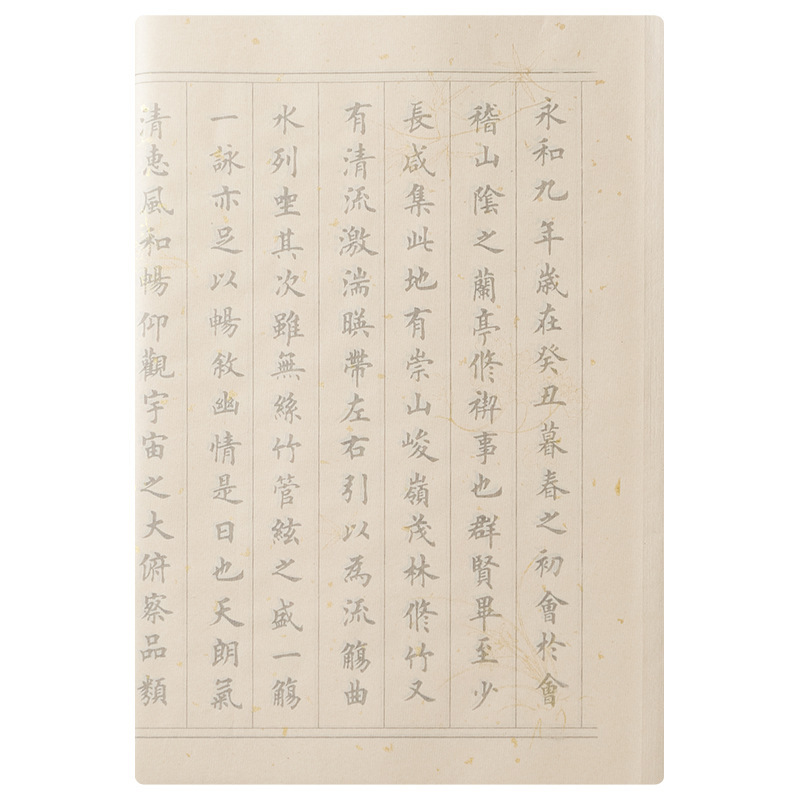 永和九年歲在癸丑暮春之初會於會
稽山陰之蘭亭脩禊事也群賢畢至少
長咸集此地有崇山峻嶺茂林脩竹又
有清流激湍暎帶左右引以為流觴曲
水列坐其次雖無絲竹管絃之盛一觴
一詠亦足以暢敘幽情是日也天朗氣
清惠風和暢仰觀宇宙之大俯察品類